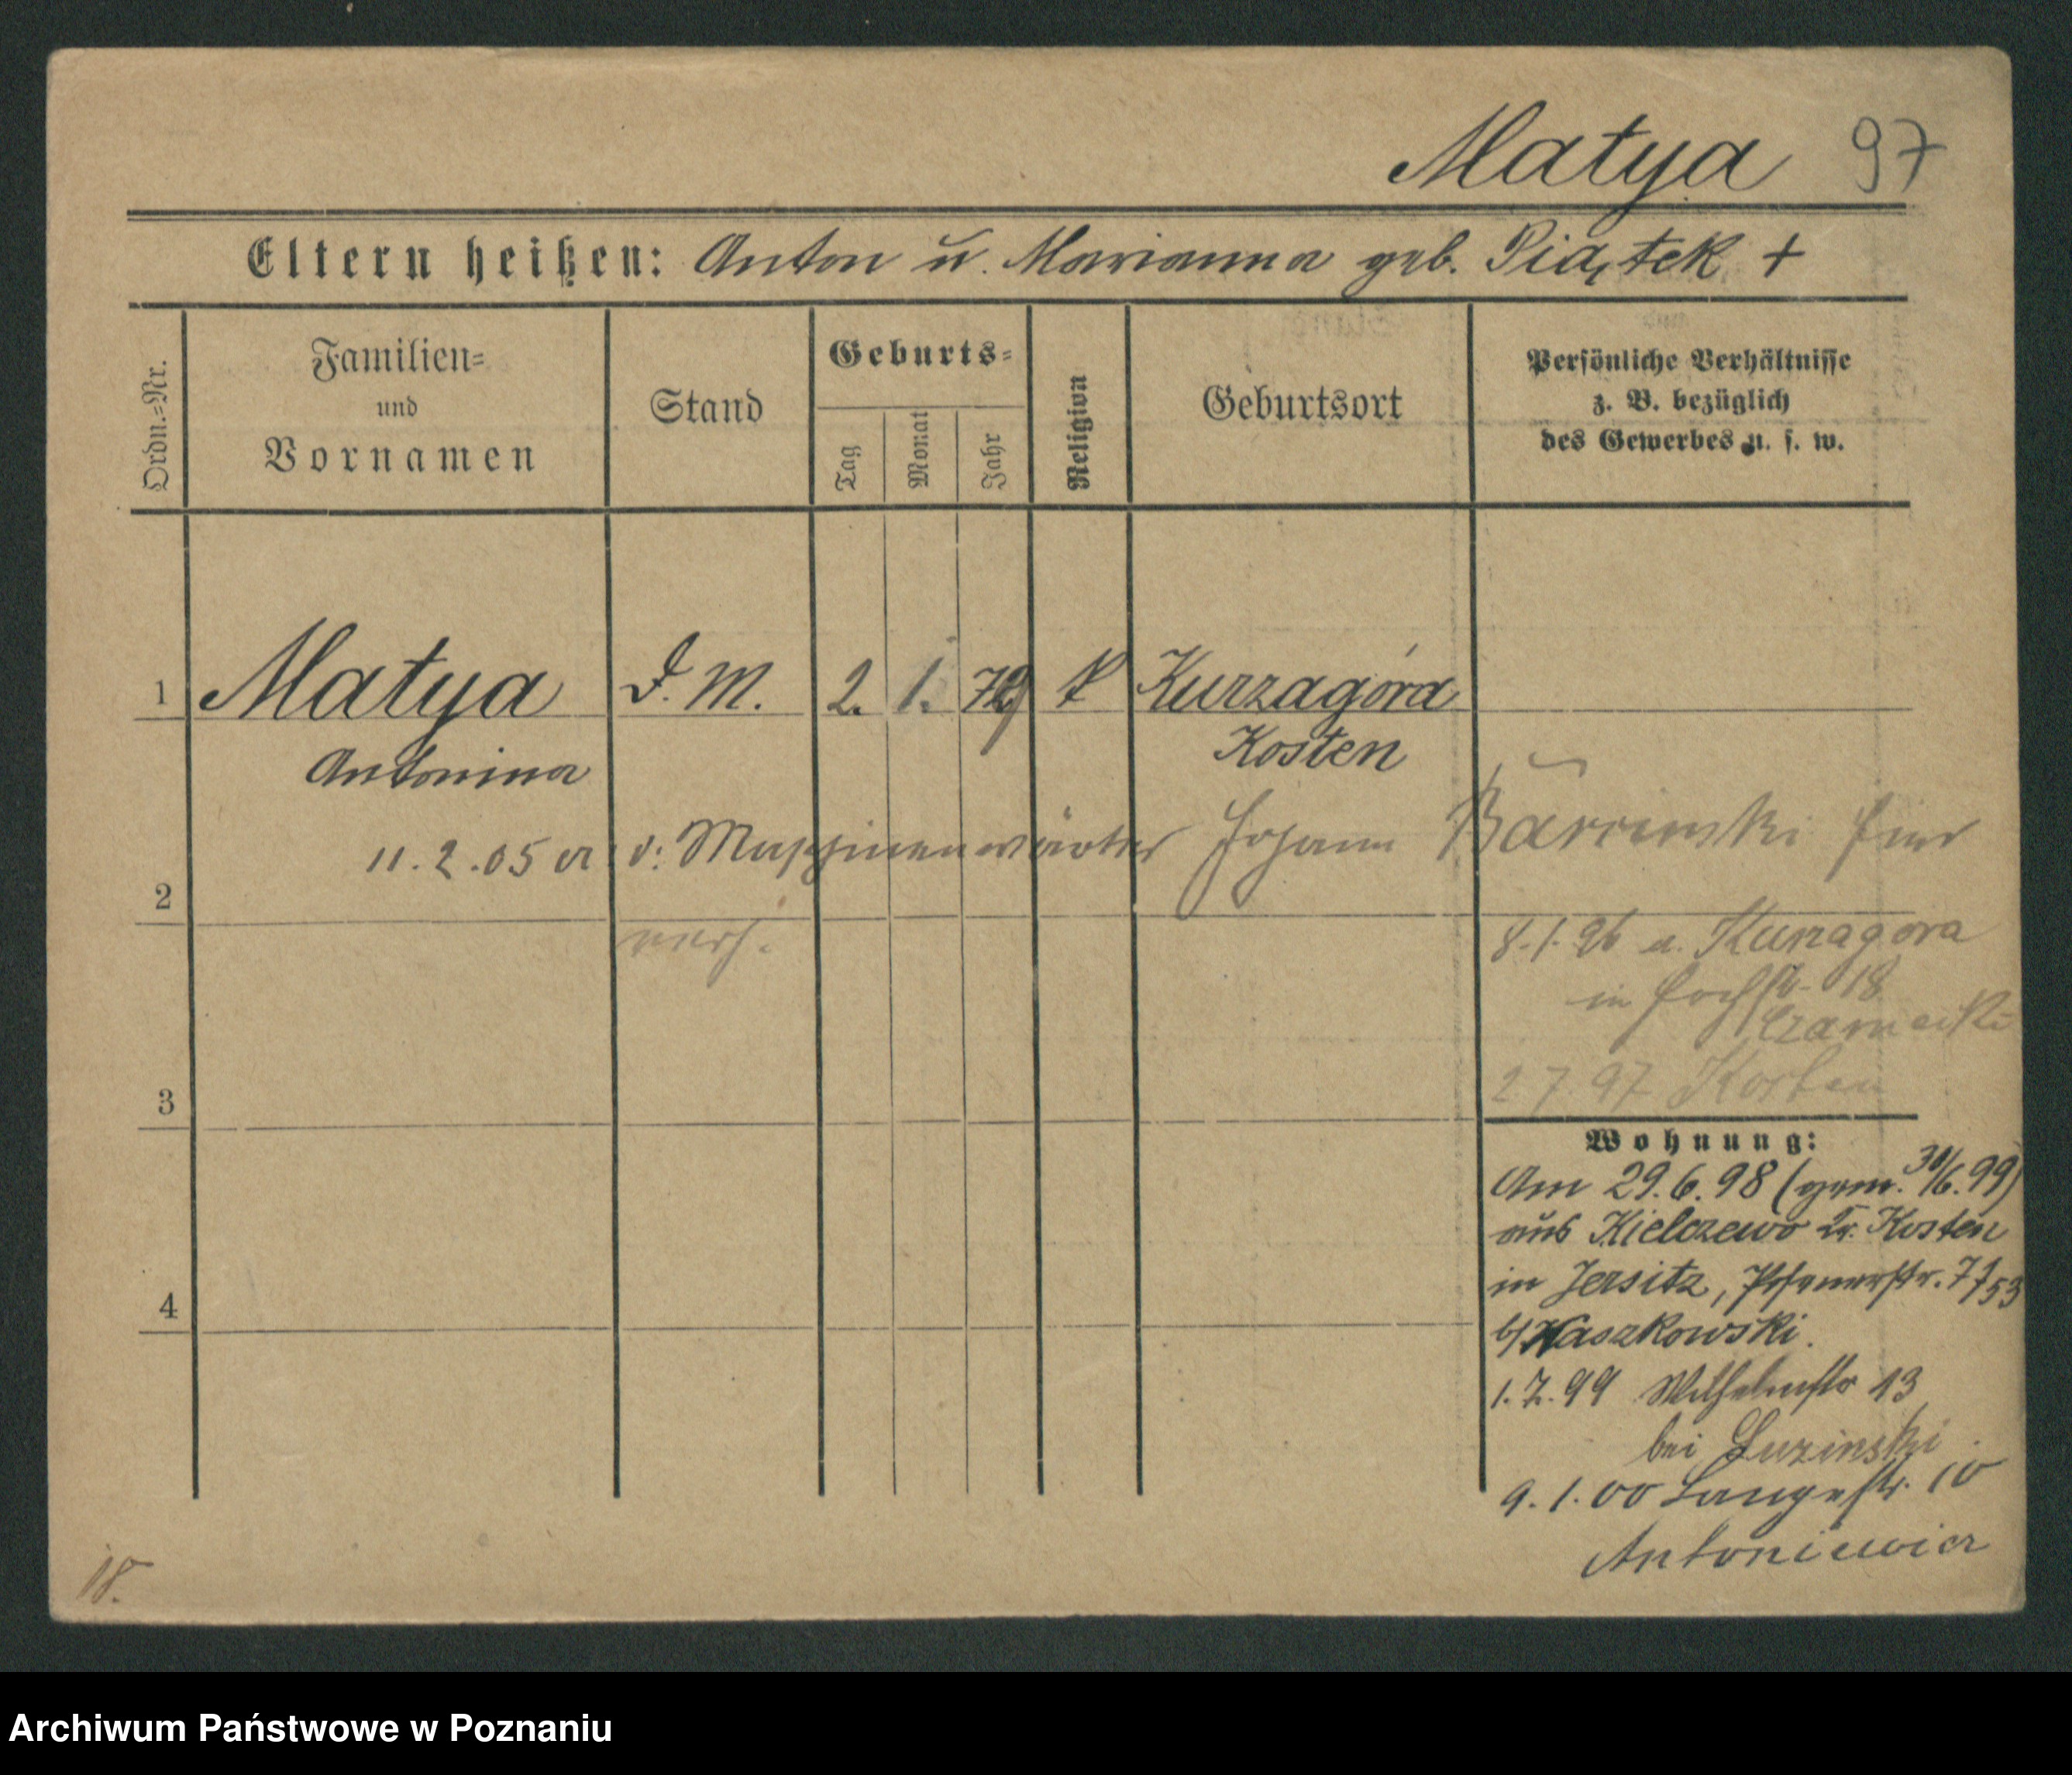 Matya 97
Eltern heißen: Anton u. Marianna geb. Piątek +
Ordn.=Nr.
Familien=
und
Vornamen
Stand
Geburts=
Tag
Monat
Jahr
Religion
Geburtsort
Persönliche Verhältnisse
z. B. bezüglich
des Gewerbes u. s. w.
1 Matya D. M. 2. 1. k Kurzagóra
Antonina Kosten
11.2.05 v: Johann hier
2
verh.
8.1.96 a. Kurzagora
in 18
Czarnecki
2 7. 97 Kosten
3
Wohnung:
Am 29.6.98 (gem. 30/6.99)
aus Kielczewo Kr. Kosten
in Jersitz, Posenerstr.
b/ Kaszkowski.
4
1.7.99 Wilhelmstr 13
bei Luzinski.
9.1.00 Langestr. 10
Antoniewicz
18.
Archiwum Państwowe w Poznaniu